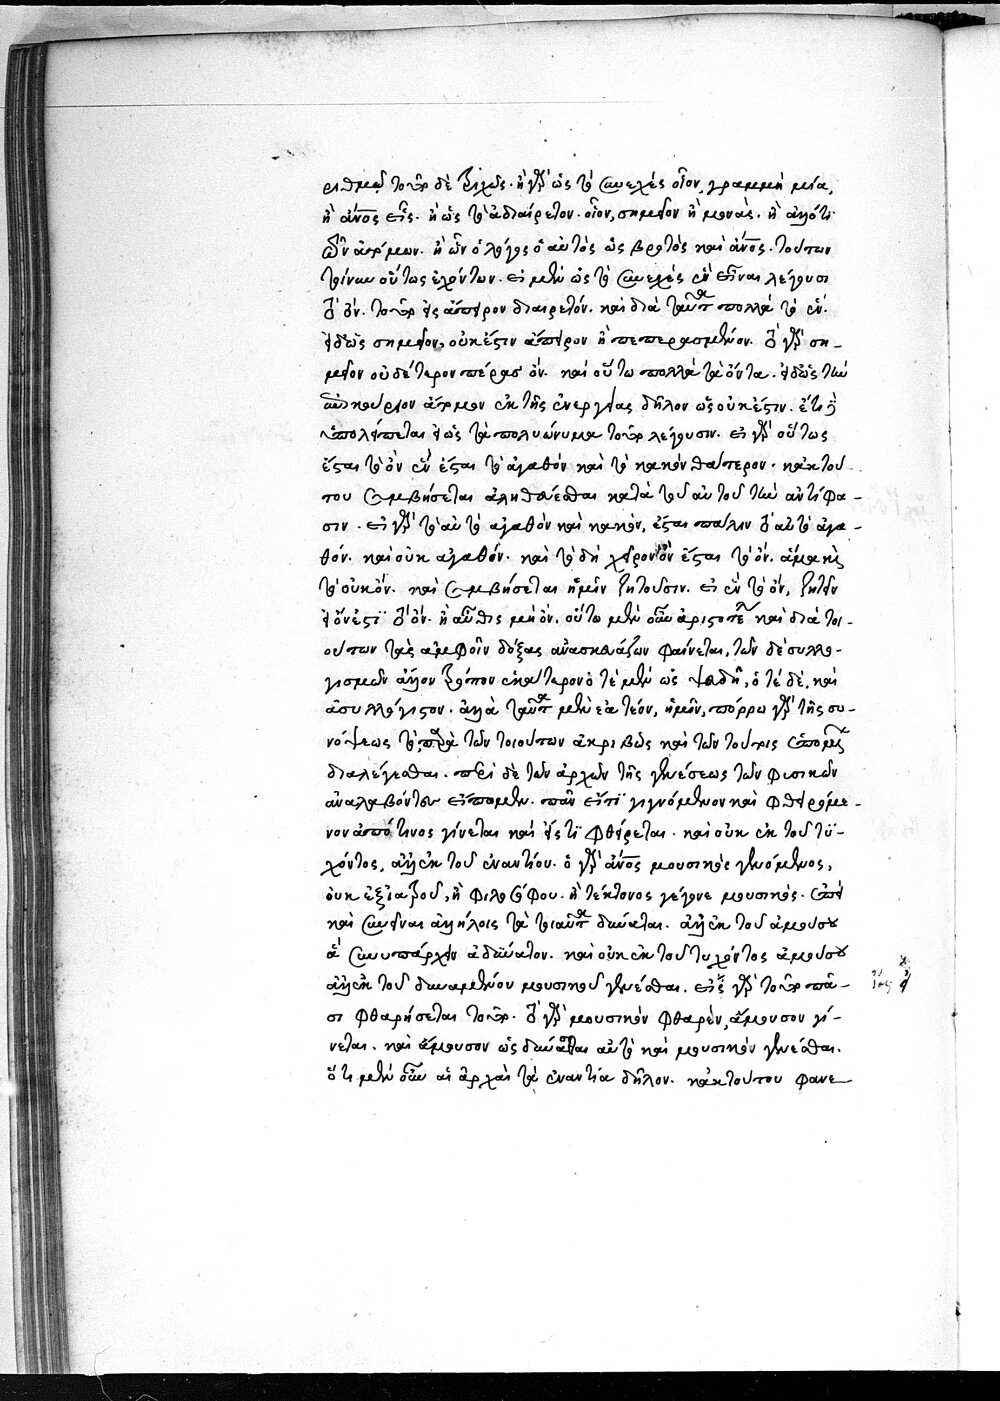 ριθμῷ τὸ ἓν δὲ τριχῶς· ἢ γὰρ ὡς τὸ συνεχὲς οἷον, γραμμὴ μία,
ἢ ἄνος εἷς· ἢ ὡς τὸ ἀδιαίρετον· οἷον, σημεῖον ἢ μονάς· ἢ
ἢ ὧν ὁ λόγος ὁ αὐτὸς ὡς βροτὸς καὶ ἄνος· τούτων
τοίνυν οὕτως ἐχόντων· εἰ μὲν ὡς τὸ συνεχὲς ἓν εἶναι λέγουσι
τὸ ὄν· τὸ ἓν εἰς ἄπειρον διαιρετόν· καὶ διὰ ταῦτα πολλὰ τὸ ἕν·
εἰ δὲ ὡς σημεῖον, οὐκ ἔστιν ἄπειρον ἢ πεπερασμένον· τὸ γὰρ ση-
μεῖον οὐδέτερον πέρας ὄν· καὶ οὕτω πολλὰ τὰ ὄντα· εἰ δὲ ὡς τὴν
ἐπικούριον ἄτομον ἐκ τῆς ἐνεργείας δῆλον ὡς οὐκ ἔστιν· ἔτι
ὑπολείπεται εἰ ὡς τὰ πολυώνυμα τὸ ἓν λέγουσιν· εἰ γὰρ οὕτως
ἔσται τὸ ὂν ἓν ἔσται τὸ ἀγαθὸν καὶ τὸ κακὸν θάτερον· κἀκ τού
του συμβήσεται ἀληθεύεσθαι κατὰ τοῦ αὐτοῦ τὴν ἀντίφα-
σιν· εἰ γὰρ ταὐτὸ ἀγαθὸν καὶ κακόν, ἔσται πάλιν τὸ αὐτὸ ἀγα-
θόν· καὶ οὐκ ἀγαθόν· καὶ τὸ δὴ χεῖρον ὂν ἔσται τὸ ὄν· ἅμα καὶ
τὸ οὐκ ὄν· καὶ συμβήσεται ἡμῖν ζητοῦσιν· εἰ ἓν τὸ ὄν, ζητεῖν
εἰ ὄν ἐστι τὸ ὄν· ἢ αὖθις μὴ ὄν· οὕτω μὲν οὖν ἀριστοτε καὶ διὰ τοι-
ούτων τὰς ἀμφοῖν δόξας ἀνασκευάζων φαίνεται, τῶν δὲ συλλο-
γισμῶν ἄλλον τρόπον ἑκάτερον ὁτὲ μὲν ὡς ψευδῆ, ὁτὲ δὲ, καὶ
ἀσυλλόγιστον· ἀλλὰ ταῦτα μὲν ἐατέον, ἡμῖν, πόρρω γὰρ τῆς συ-
νόψεως τὸ περὶ τῶν τοιούτων ἀκριβῶς καὶ τῶν τούτοις
διαλέγεσθαι· περὶ δὲ τῶν ἀρχῶν τῆς γενέσεως τῶν φυσικῶν
ἀναλαβόντες εἴπομεν· πᾶν εἴ τι γιγνόμενον καὶ φθειρόμε-
νον ἀπό τινος γίνεται καὶ εἴς τι φθείρεται· καὶ οὐκ ἐκ τοῦ τυ-
χόντος, ἀλλ' ἐκ τοῦ ἐναντίου· ὁ γὰρ ἄνος μουσικὸς γενόμενος,
οὐκ ἐξ ἰατροῦ, ἢ φιλοσόφου· ἢ τέκτονος γέγονε μουσικός·
καὶ συνεῖναι ἀλλήλοις τὰ τοιαῦτα δύναται· ἀλλ' ἐκ τοῦ ἀμούσου
ἃ συνυπάρχειν ἀδύνατον· καὶ οὐκ ἐκ τοῦ τυχόντος ἀμούσου
ἀλλ' ἐκ τοῦ δυναμένου μουσικοῦ γενέσθαι· εἰς ὃ γὰρ τὸ ἓν πᾶ-
σι φθαρήσεται τὸ ἕν· τὸ γὰρ μουσικὸν φθαρέν, ἄμουσον γί-
νεται· καὶ ἄμουσον ὡς δύνασθαι αὐτὸ καὶ μουσικὸν γενέσθαι·
ὅτι μὲν οὖν αἱ ἀρχαὶ τὰ ἐναντία δῆλον· κἀκ τούτου φανε